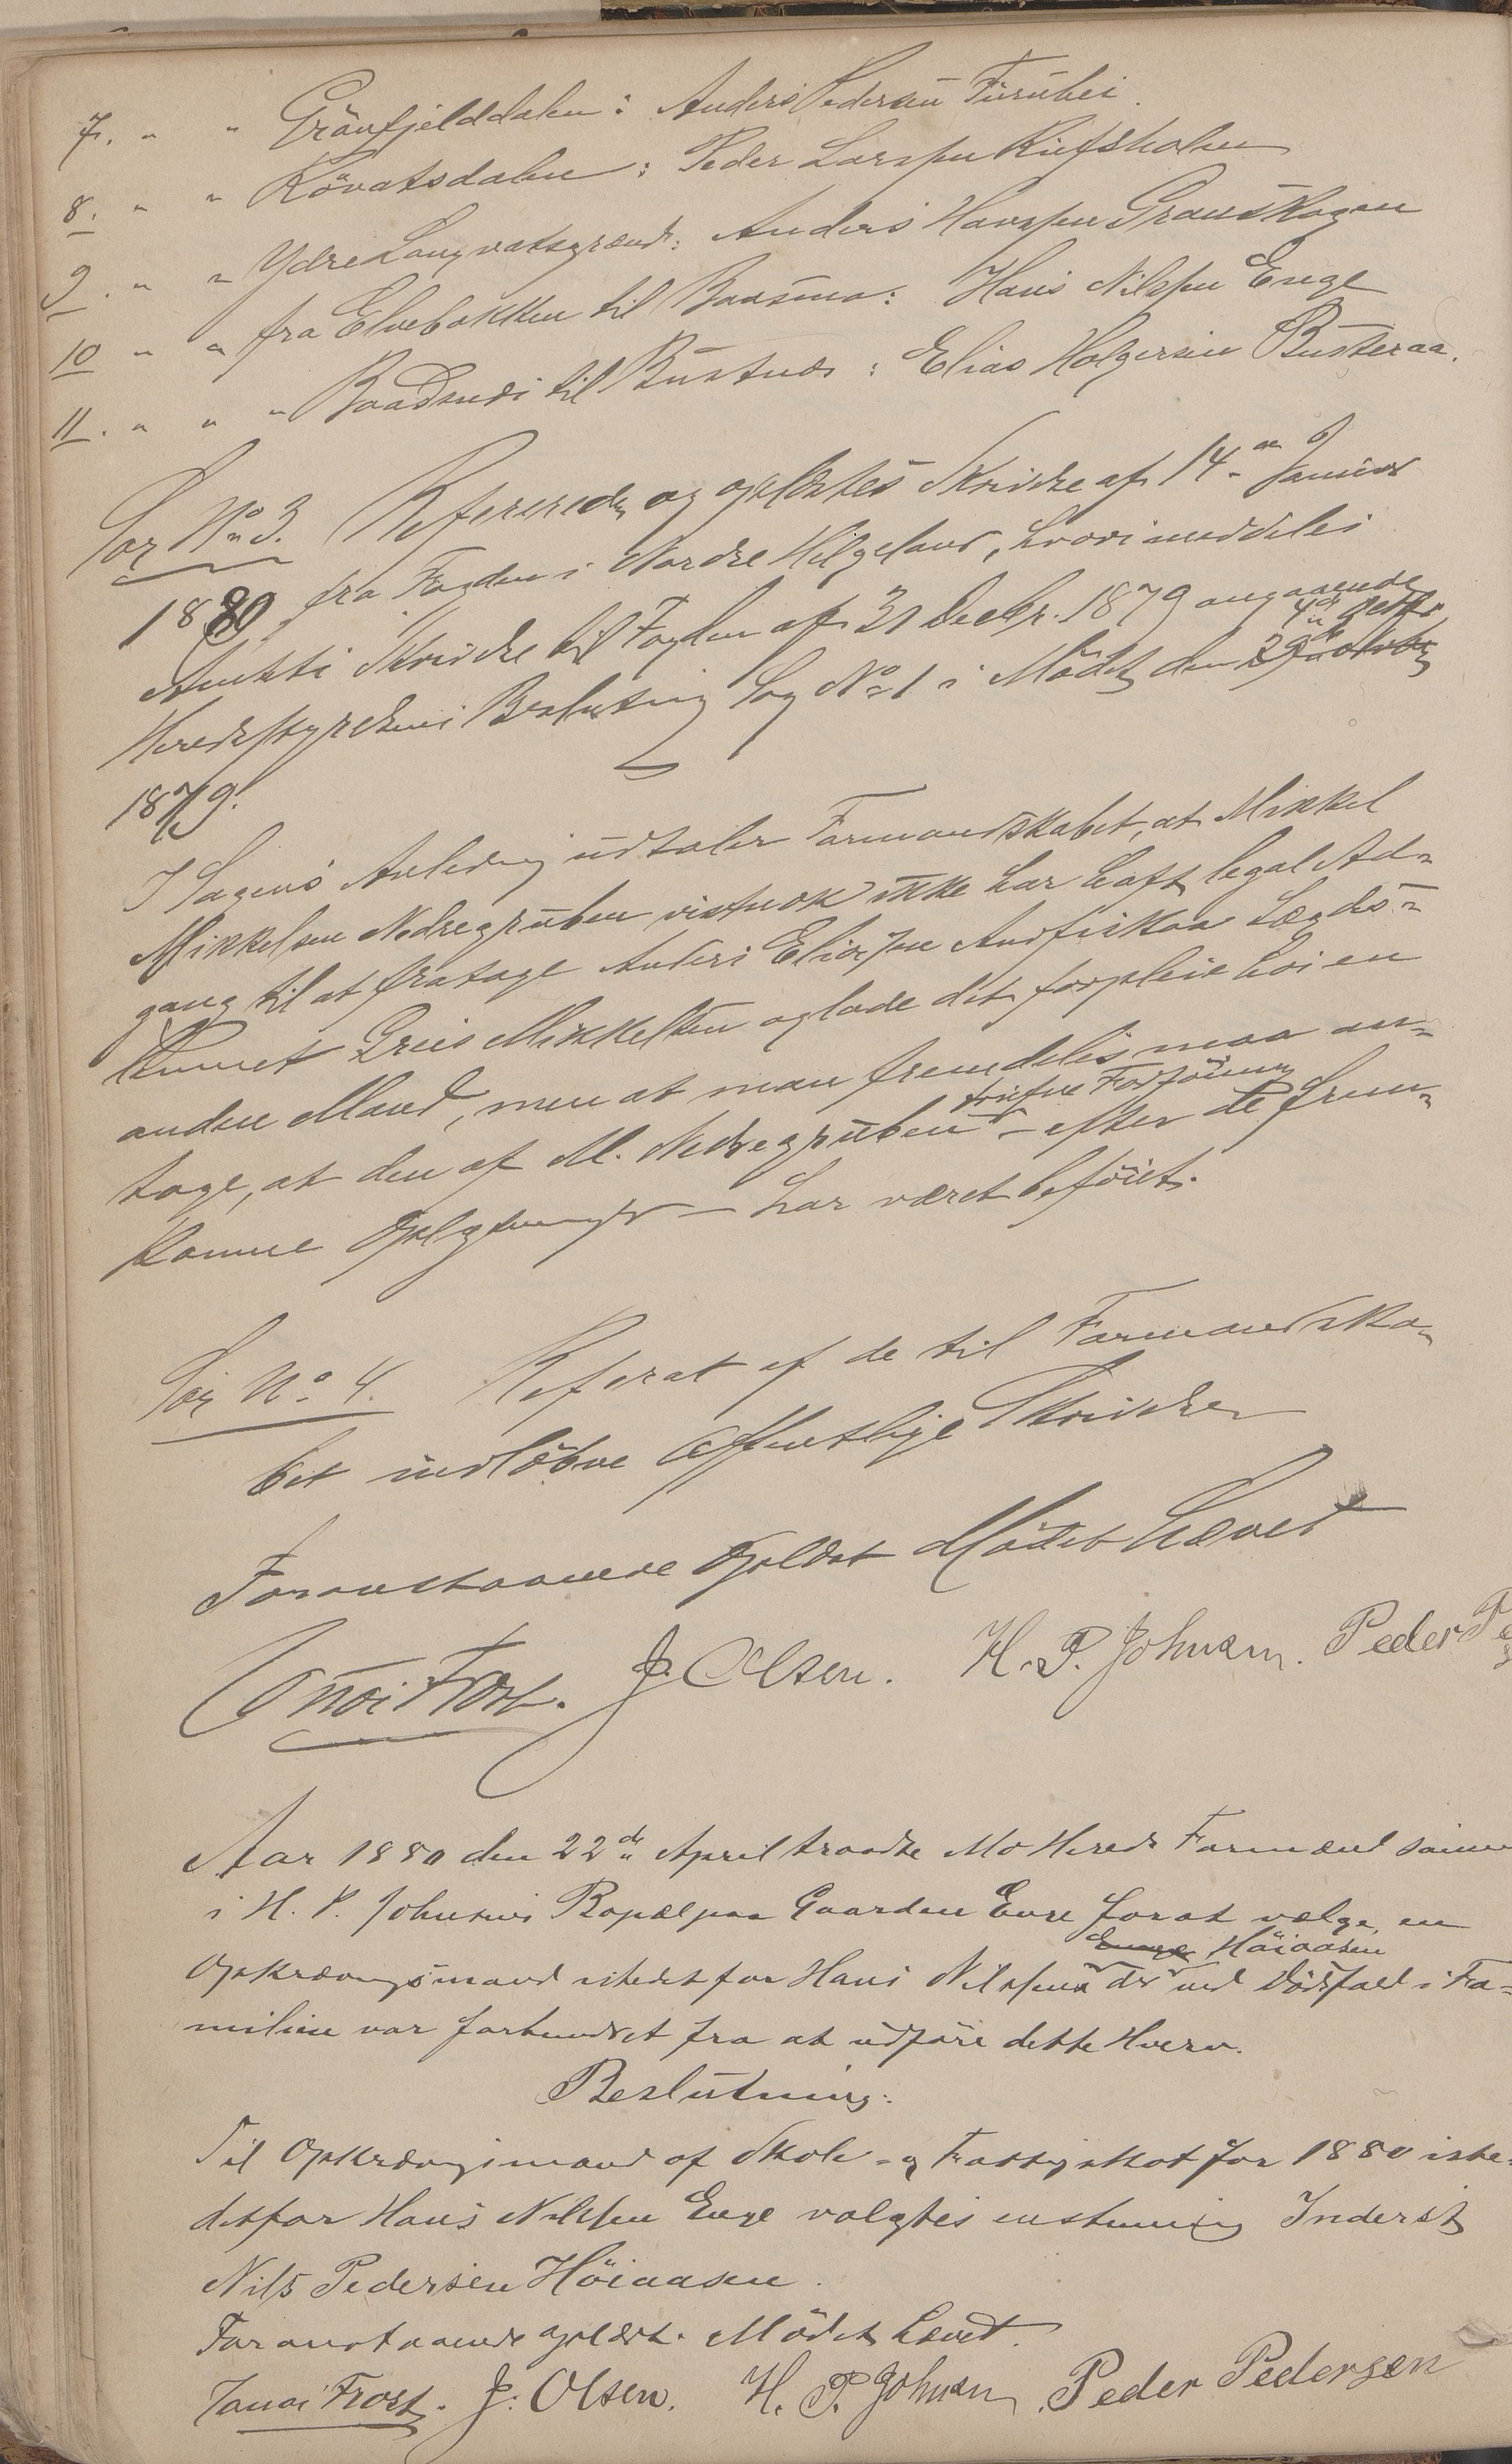 7. " " Grönfjelddalen: Anders Pedersen Furuhei.
8. " " Rövatsdalen: Peder Larssen Rufsholm
9. " " Ydre Langvatsgrend: Anders Hanssen Granskogen
10 " " fra Elvebakken til Baasmo: Hans Nilssen Enge
11. " " " Baasmo til Bustnes: Elias Holgersen Busteraa.
Sag No 3. Refereredes og oplæstes Skrivelse af 14de Januar
1880 fra Fogden i Nordre Helgeland, hvori meddeles
Amtets Skrivelse til Fogden af 31 Decbr. 1879 angaaende
Heredsstyrelsens Beslutning Sag No 1 i Mödet den 29de Oktbr 4de Septbr
1879.
I Sagens Anledning udtaler Formandskabet, at Mikkel
Mikkelsen Nedregruben vistnok ikke har havt legal Ad-
gang til at fratage Anders Eliassen Andfiskaa Lægds-
lemmet Greis Mikkelsen og lade det forpleie hos en
anden Mand, men at man fremdeles maa an-
tage, at den af M. Nedregruben trufne Forföining - efter de frem-
komne Oplysninger - har været beföiet.
Sag No 4. Referat af de til Formandska-
bet indlöbne Offentlige Skrivelser
Foranstaaende Oplæst Mödet hævet
Frost. J. Olsen. H. P. Johnsen. Peder Pe
Aar 1880 den 22de April traadte Mo Hereds Formænd samm
i H. P. Johnsens Bopæl paa Gaarden Enge forat vælge en
Opkrævningsmand istedet for Hans Nilssen Enge Höiaasen der ved Dödsfald i Fa-
milien var forhindret fra at udföre dette Hverv.
Beslutning:
Til Opkrævningsmand af Skole- og Fattigskat for 1880 iste-
detfor Hans Nilssen Enge valgtes enstemmig Inderst
Nils Pedersen Höiaasen.
Foranstaaende oplæst. Mödet hævet.
Frost. J. Olsen. H. P. Johnsen Peder Pedersen